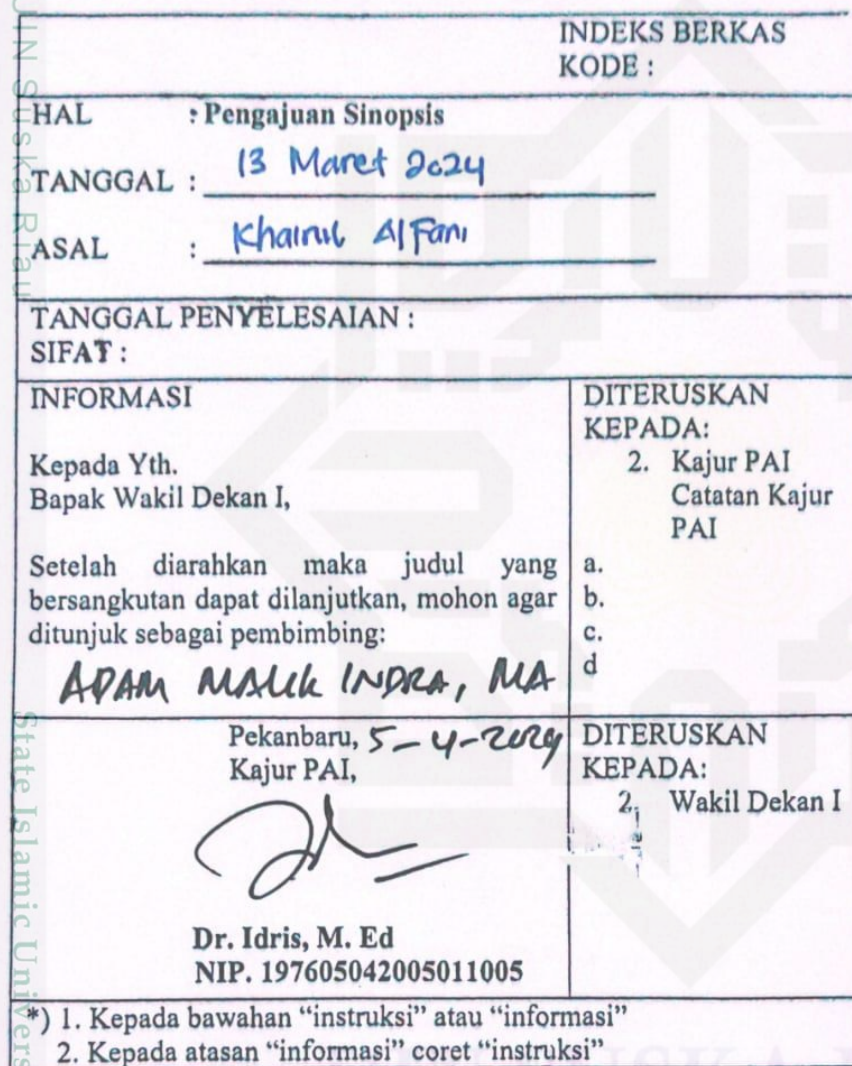 INDEKS BERKAS
KODE :
HAL : Pengajuan Sinopsis
TANGGAL : 13 Maret 2024
ASAL : Khairul Al Fani
TANGGAL PENYELESAIAN :
SIFAT :
INFORMASI
Kepada Yth.
Bapak Wakil Dekan I,
Setelah diarahkan maka judul yang
bersangkutan dapat dilanjutkan, mohon agar
ditunjuk sebagai pembimbing:
ADAM MALIK INDRA, MA
DITERUSKAN
KEPADA:
2. Kajur PAI
Catatan Kajur
PAI
a.
b.
c.
d
Pekanbaru, 5-4-2024
Kajur PAI,
Dr. Idris, M. Ed
NIP. 197605042005011005
DITERUSKAN
KEPADA:
2. Wakil Dekan I
*) 1. Kepada bawahan “instruksi” atau “informasi”
2. Kepada atasan “informasi” coret “instruksi”
UIN Suska Riau
State Islamic Univers